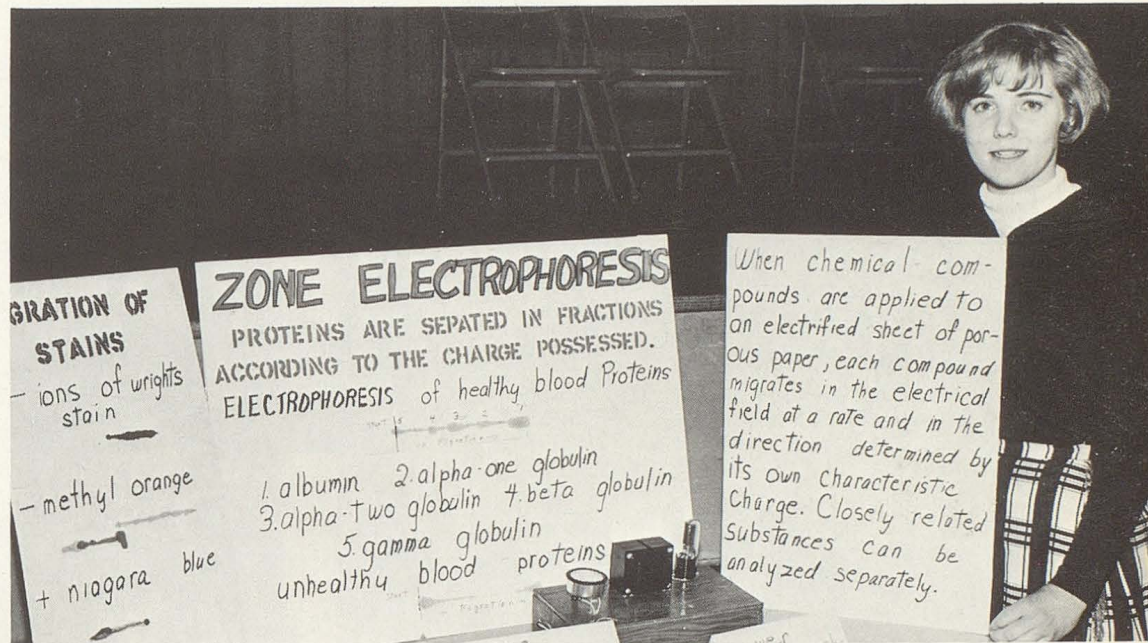 GRATION OF
STAINS
- ions of wrights
stain
- methyl orange
+ niagara blue
ZONE ELECTROPHORESIS
PROTEINS ARE SEPATED IN FRACTIONS
ACCORDING TO THE CHARGE POSSESSED.
ELECTROPHORESIS of healthy blood Proteins
start 5 4 3 2 1
Migration
1. albumin 2. alpha-one globulin
3. alpha-two globulin 4. beta globulin
5. gamma globulin
unhealthy blood proteins
start
Migration
When chemical com-
pounds are applied to
an electrified sheet of por-
ous paper, each compound
migrates in the electrical
field at a rate and in the
direction determined by
its own characteristic
Charge. Closely related
substances can be
analyzed separately.